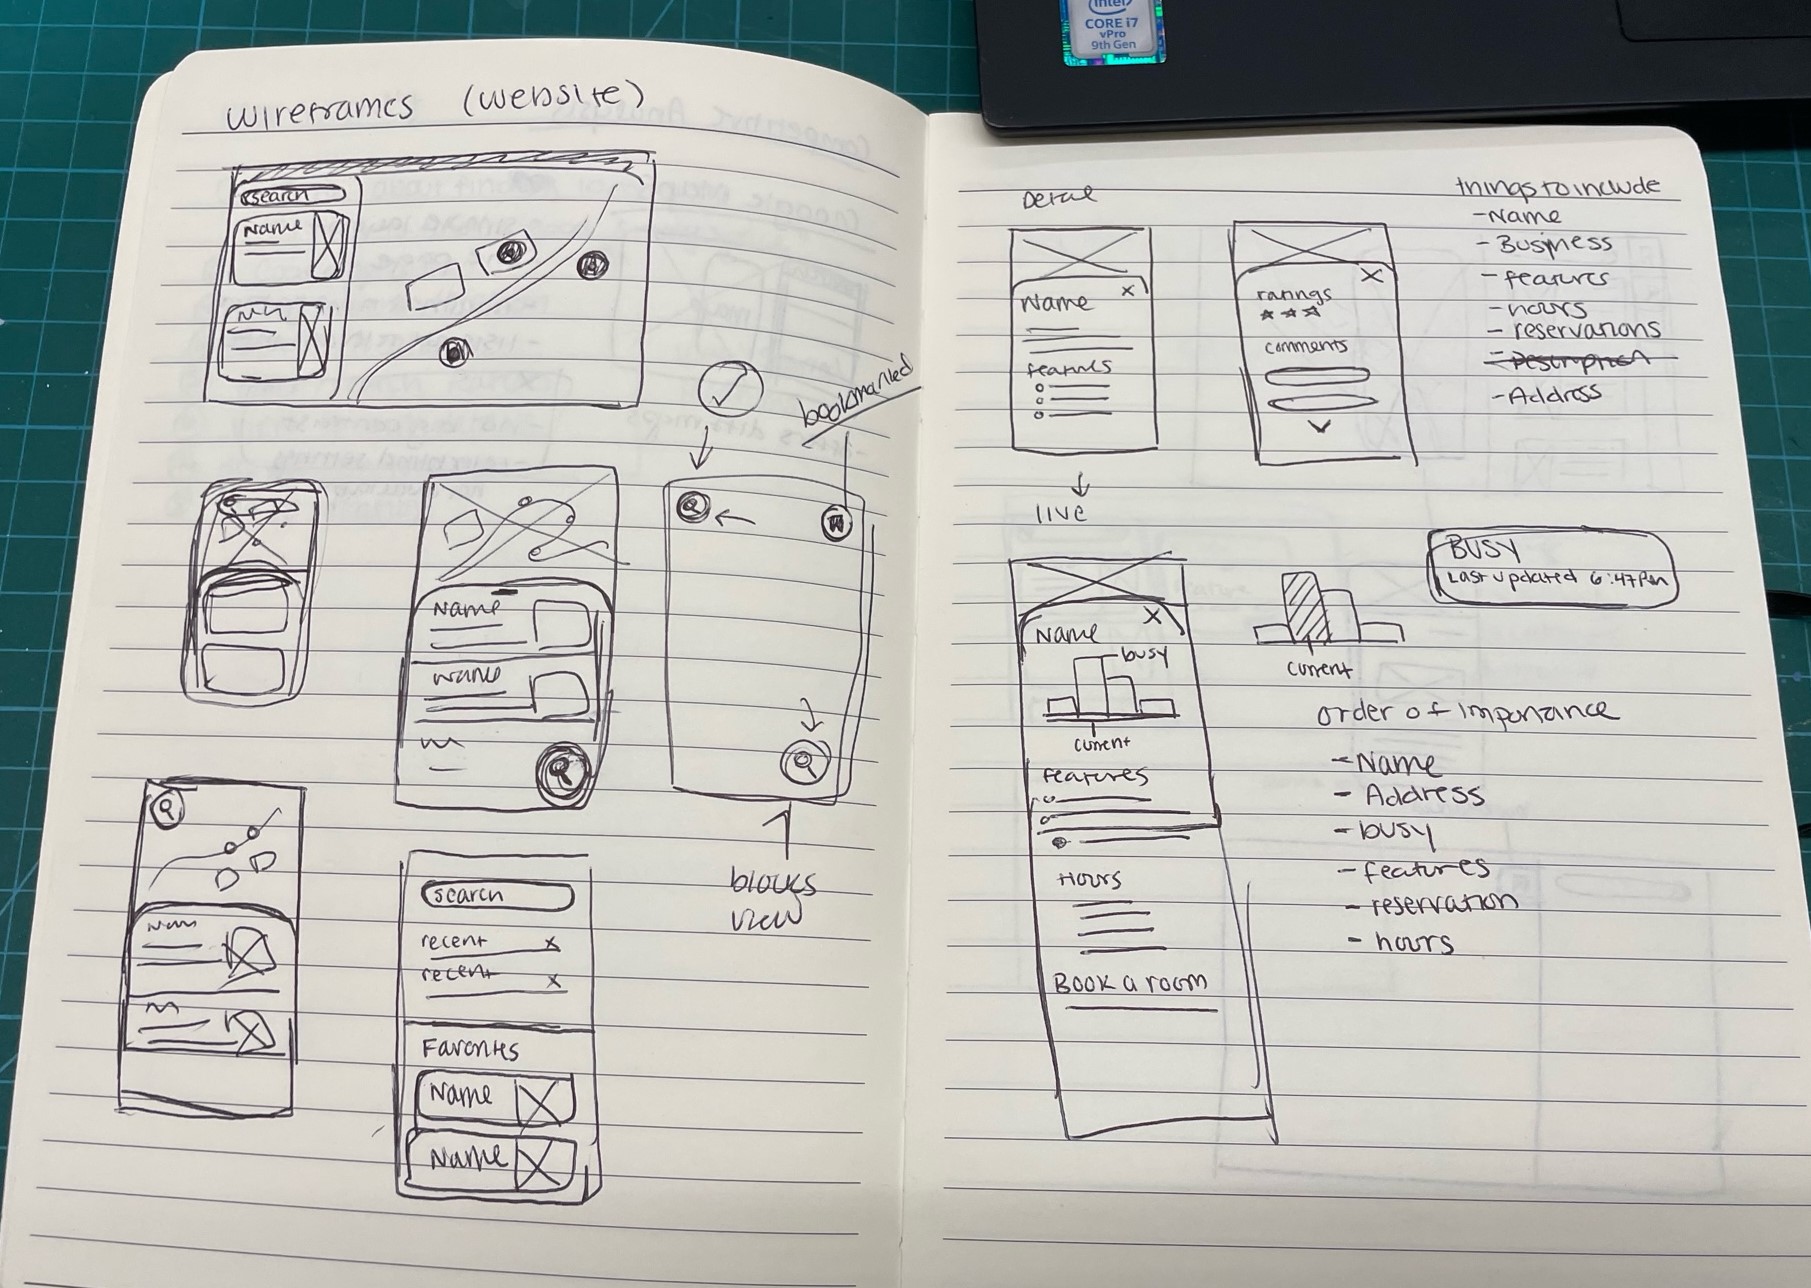 intel
CORE i7
vPro
9th Gen
wireframes (website)
search
Name
bookmarked
Name
Name
blocks
view
search
recent x
recent x
Favorites
Name
Name
Detail
Name x
features
x
ratings
comments
things to include
- Name
- Business
- features
- hours
- reservations
- Address
live
Name x
busy
current
features
Hours
Book a room
BUSY
Last updated 6:47pm
current
order of importance
- Name
- Address
- busy
- features
- reservation
- hours